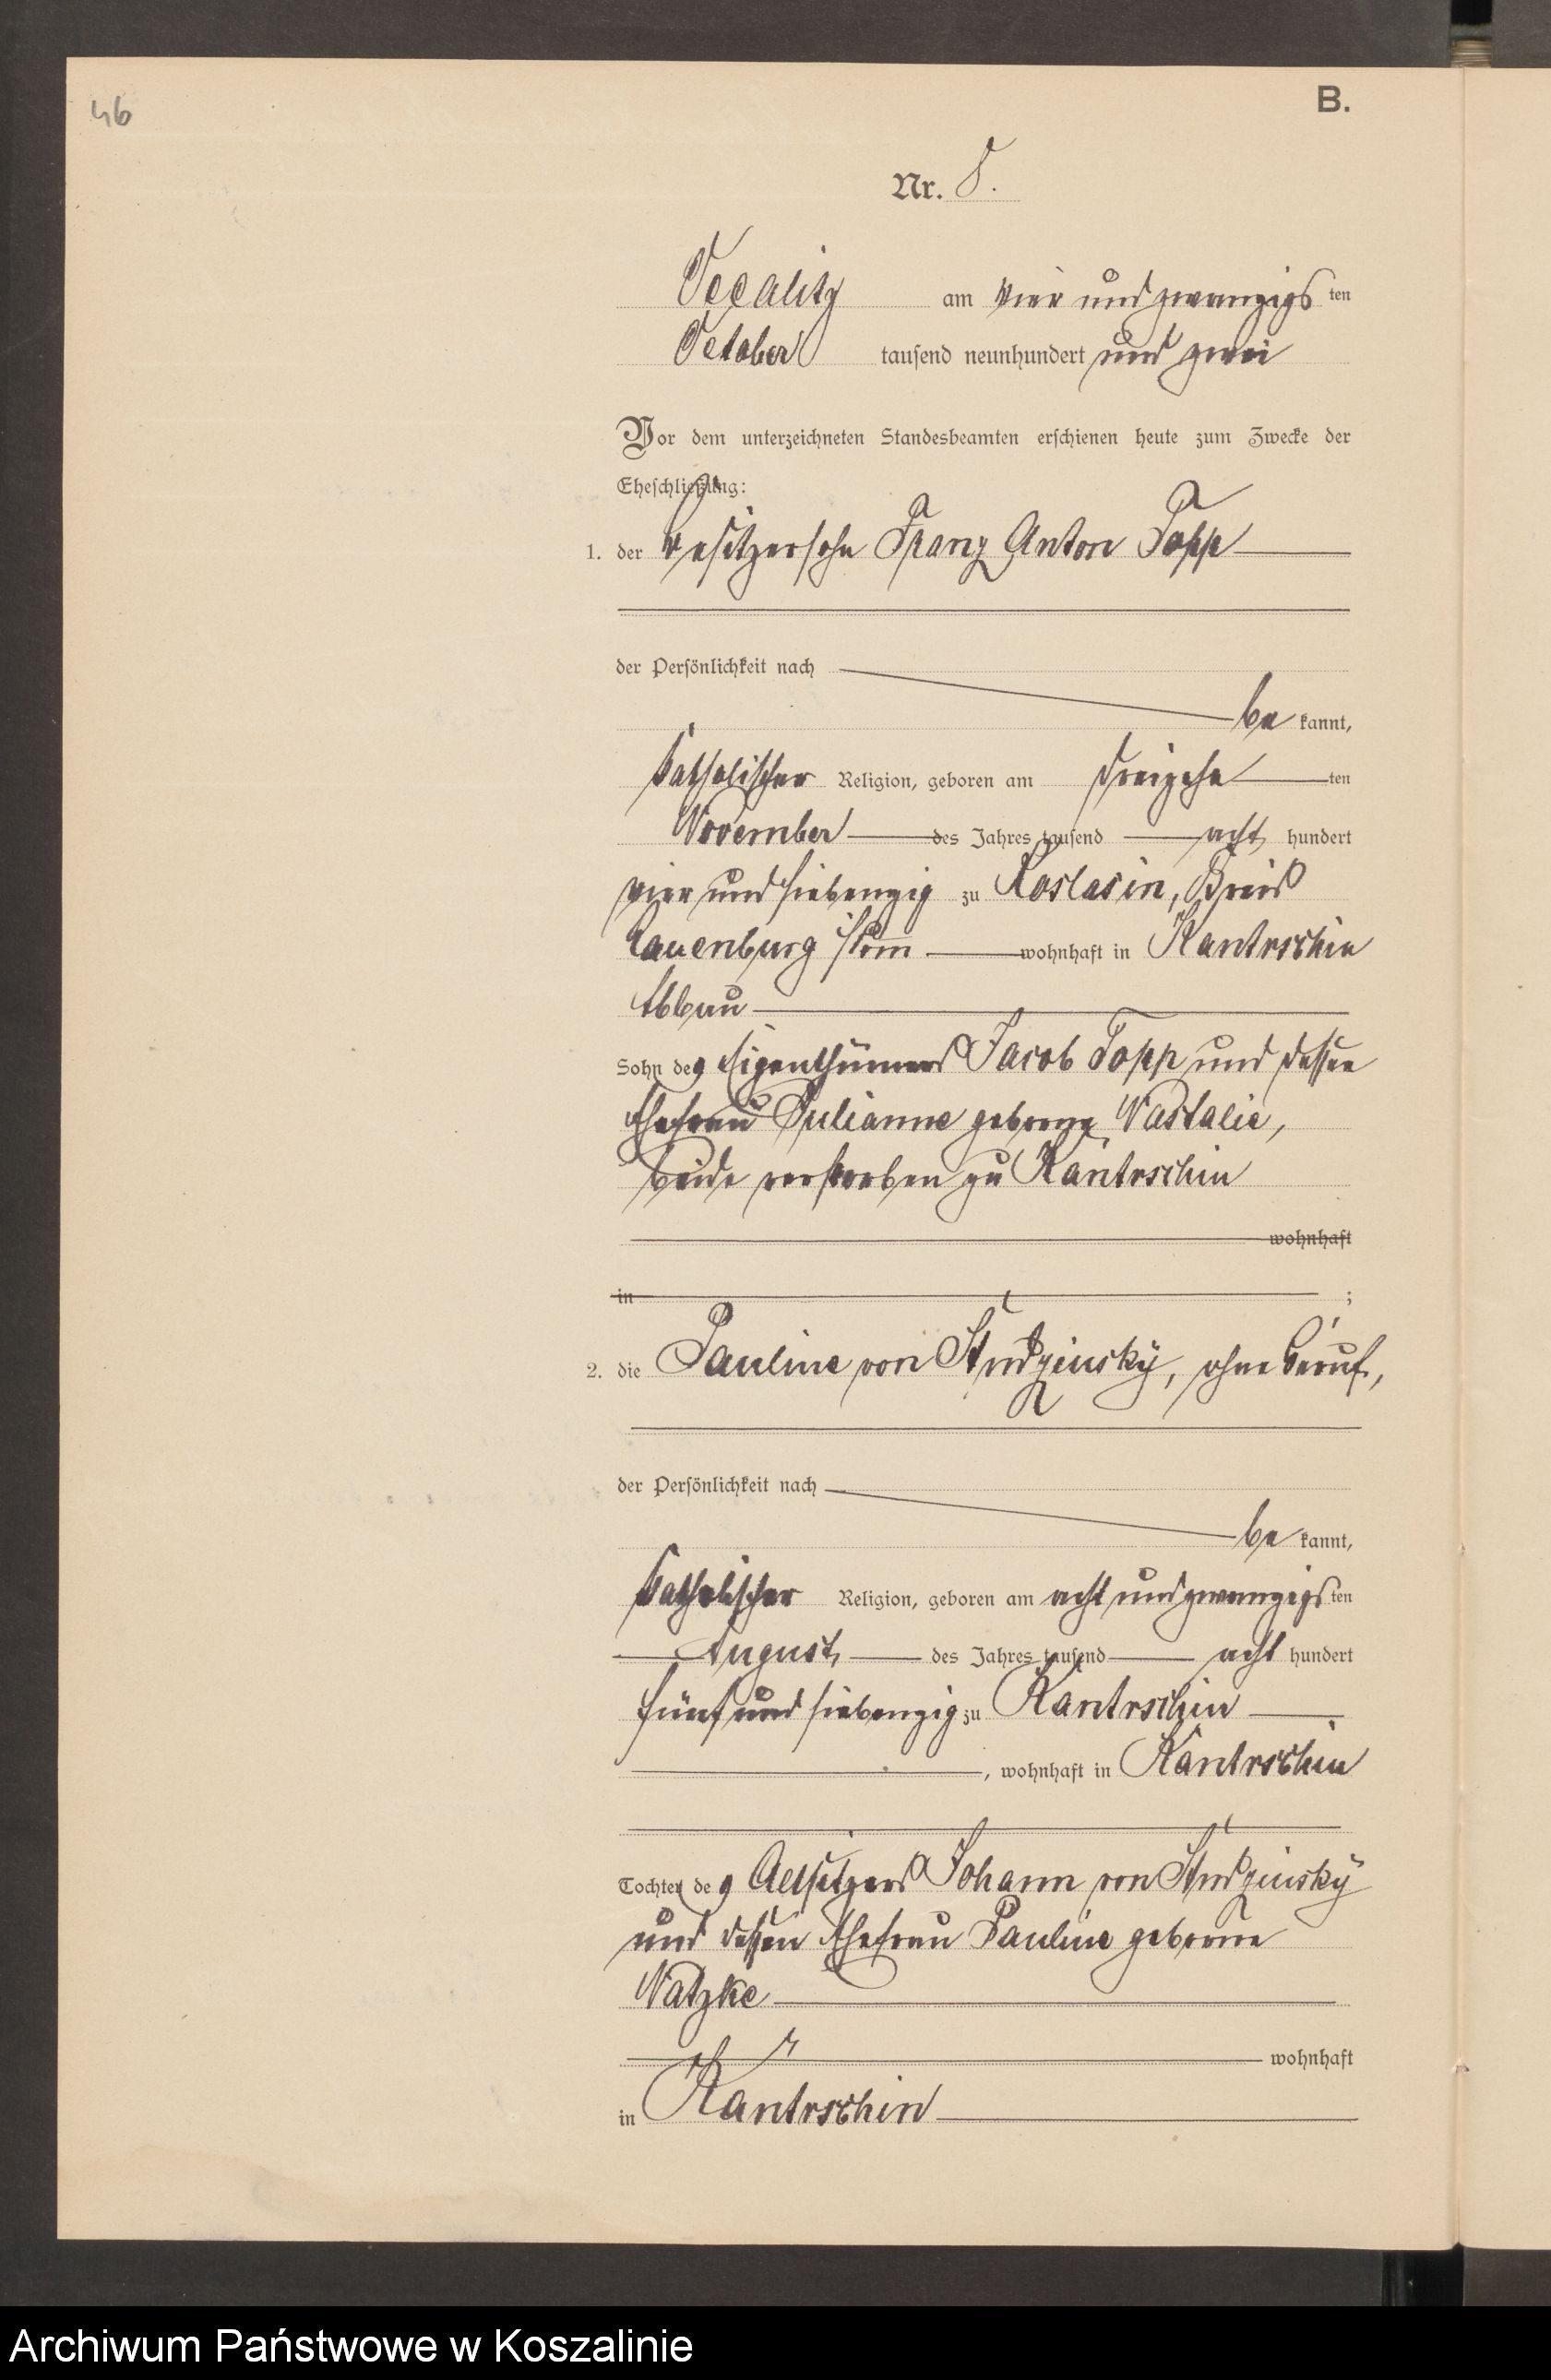 46
B.
Nr. 8.
Occalitz am vier und zwanzigs ten
October tausend neunhundert und zwei
Vor dem unterzeichneten Standesbeamten erschienen heute zum Zwecke der
Eheschließung:
1. der Besitzersohn Franz Anton Topp
der Persönlichkeit nach
be kannt,
katholischer Religion, geboren am dreizehn ten
November des Jahres tausend acht hundert
vier und siebenzig zu Roslasin, Kreis
Lauenburg i/Pom wohnhaft in Kantrschin
Abbau
Sohn des Eigenthümers Jacob Topp und dessen
Ehefrau Julianne geborene Wastalie,
beide verstorben zu Kantrschin
wohnhaft
in ;
2. die Pauline von Studzinsky, ohne Beruf,
der Persönlichkeit nach
be kannt,
katholischer Religion, geboren am acht und zwanzigs ten
August des Jahres tausend acht hundert
fünf und siebenzig zu Kantrschin
, wohnhaft in Kantrschin
Tochter des Altsitzers Johann von Studzinsky
und dessen Ehefrau Pauline geborene
Natzke
wohnhaft
in Kantrschin
Archiwum Państwowe w Koszalinie